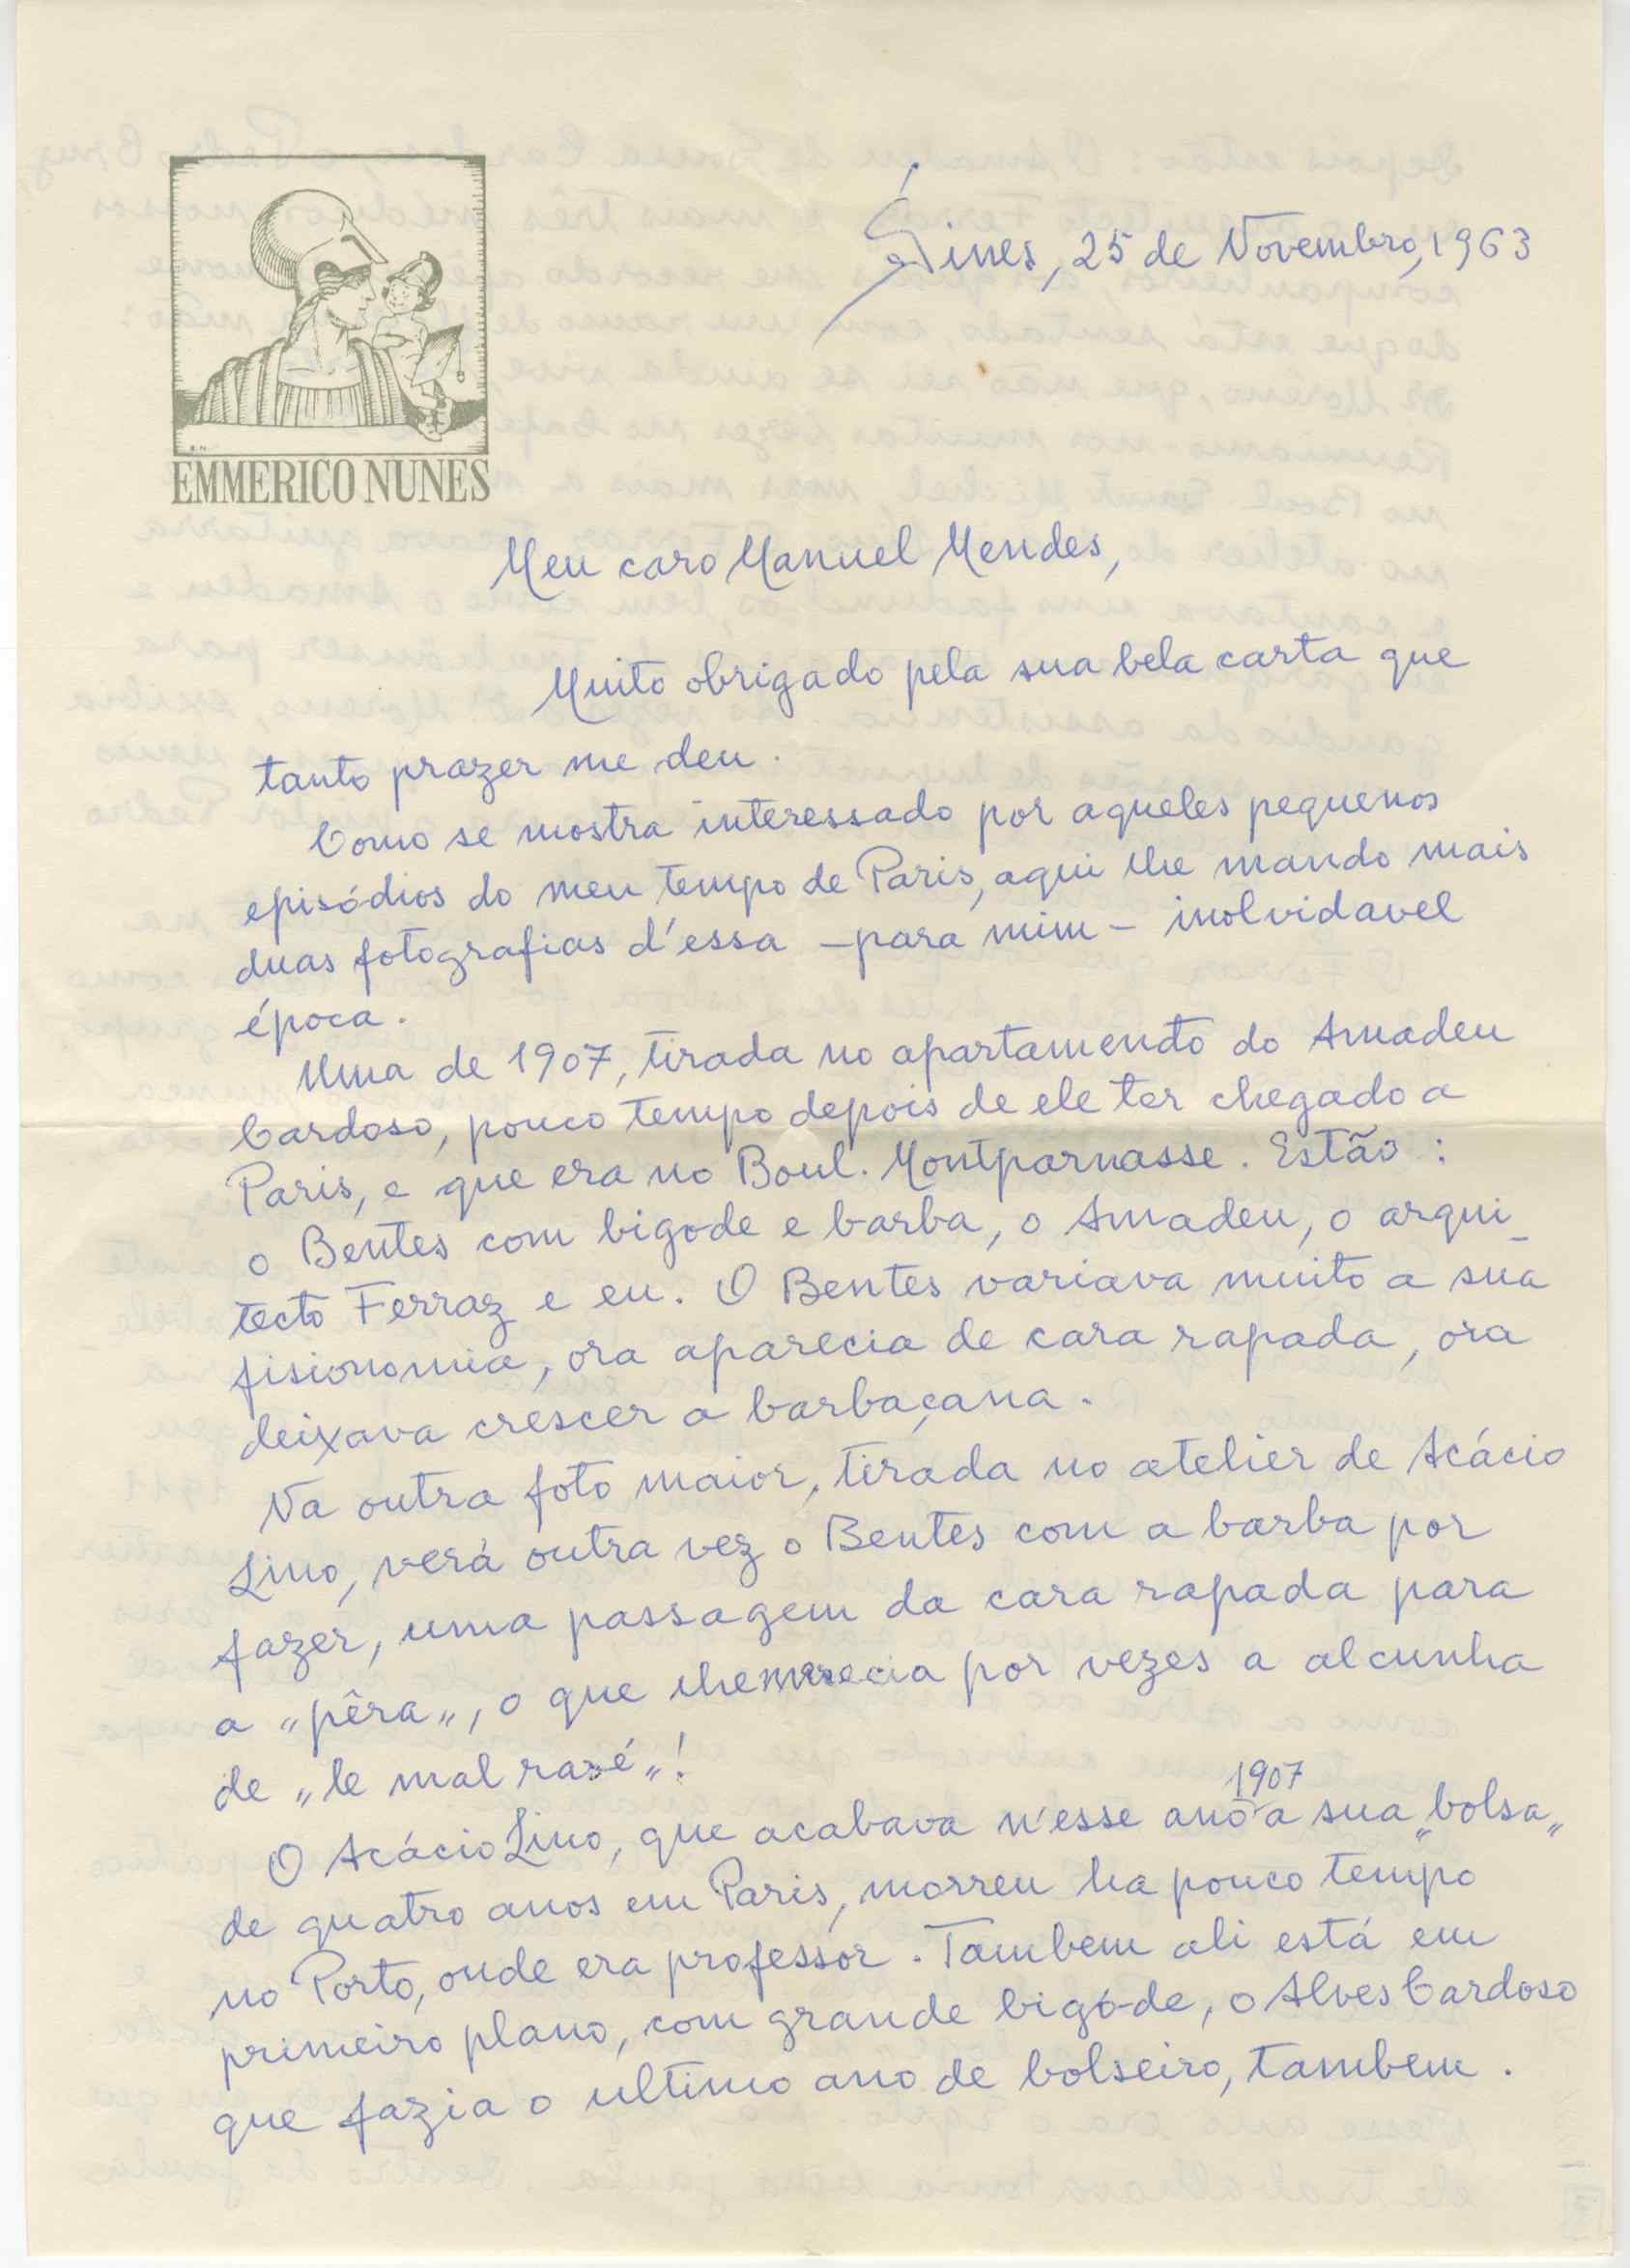 Sines, 25 de Novembro, 1963
EMMERICO NUNES
Meu caro Manuel Mendes,
Muito obrigado pela sua bela carta que
tanto prazer me deu.
Como se mostra interessado por aqueles pequenos
episódios do meu tempo de Paris, aqui lhe mando mais
duas fotografias d'essa – para mim – inolvidavel
época.
Uma de 1907, tirada no apartamento do Amadeu
Cardoso, pouco tempo depois de ele ter chegado a
Paris, e que era no Boul. Montparnasse. Estão:
o Bentes com bigode e barba, o Amadeu, o arqui-
tecto Ferraz e eu. O Bentes variava muito a sua
fisionomia, ora aparecia de cara rapada, ora
deixava crescer a barbaçana.
Na outra foto maior, tirada no atelier de Acácio
Lino, verá outra vez o Bentes com a barba por
fazer, uma passagem da cara rapada para
a "pêra", o que lhe merecia por vezes a alcunha
de "le mal rasé"!
1907
O Acácio Lino, que acabava n'esse ano a sua "bolsa"
de quatro anos em Paris, morreu ha pouco tempo
no Porto, onde era professor. Tambem ali está em
primeiro plano, com grande bigode, o Alves Cardoso
que fazia o ultimo ano de bolseiro, tambem.